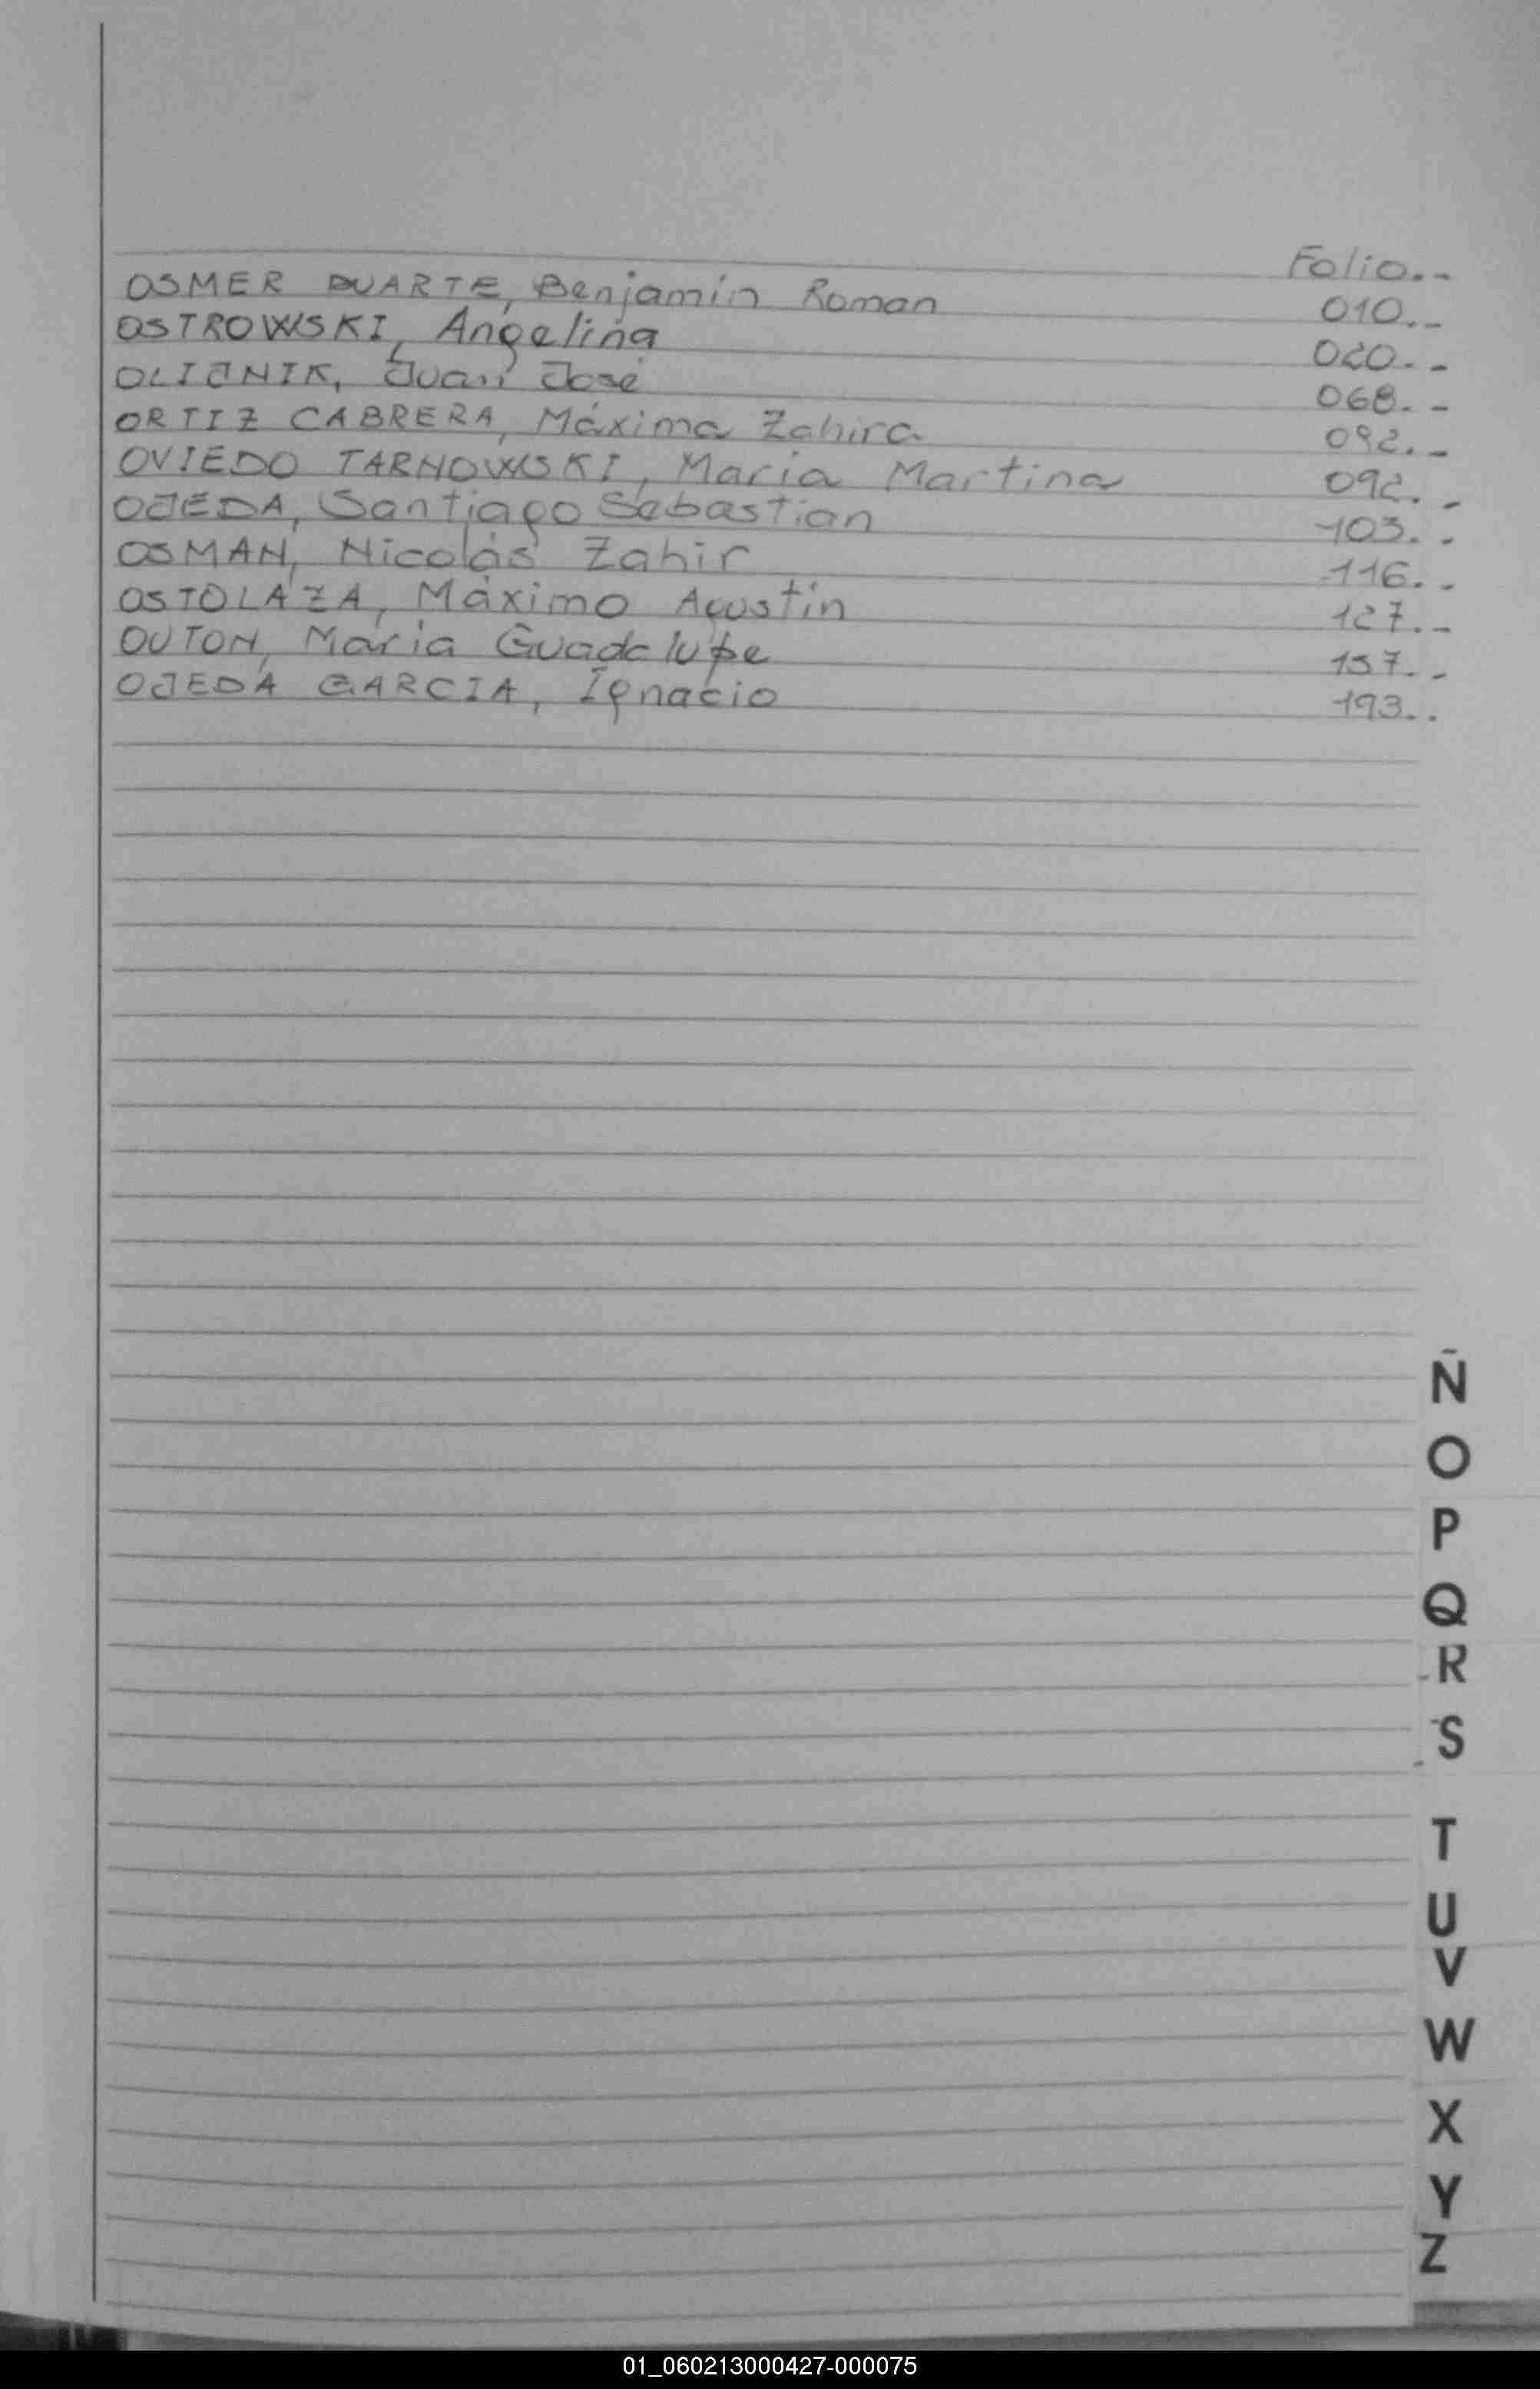 Folio..-
OSMER DUARTE, Benjamín Roman 010..-
OSTROWSKI, Angelina 020..-
OLIJNIK, Juan José 068..-
ORTIZ CABRERA, Máxima Zahira 092..-
OVIEDO TARNOWSKI, María Martina 092..-
OJEDA, Santiago Sebastian 103..-
OSMAN, Nicolás Zahir 116..-
OSTOLAZA, Máximo Agustín 127..-
OUTON, María Guadalupe 157..-
OJEDA GARCIA, Ignacio 193..
Ñ
O
P
Q
R
S
T
U
V
W
X
Y
Z
01_060213000427-000075